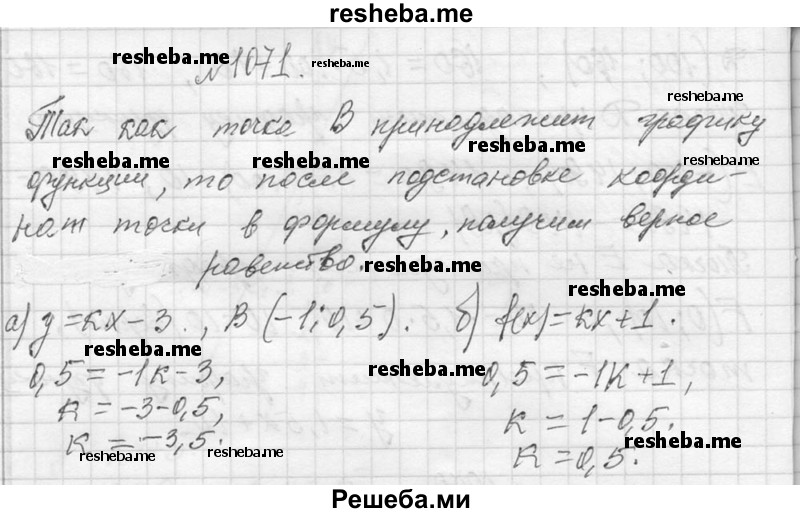 resheba.me
№1071.
Так как точка В принадлежит графику
функции, то после подстановке коорди-
нат точки в формулу, получим верное
равенство.
а) y=кx-3., В(-1;0,5). б) f(x)=кx+1.
0,5=-1к-3, 0,5=-1к+1,
к=-3-0,5, к=1-0,5.
к=-3,5. к=0,5.
resheba.me
resheba.me
resheba.me
resheba.me
resheba.me
resheba.me
resheba.me
resheba.me
resheba.me
resheba.me
resheba.me
resheba.me
resheba.me
resheba.me
Решеба.ми